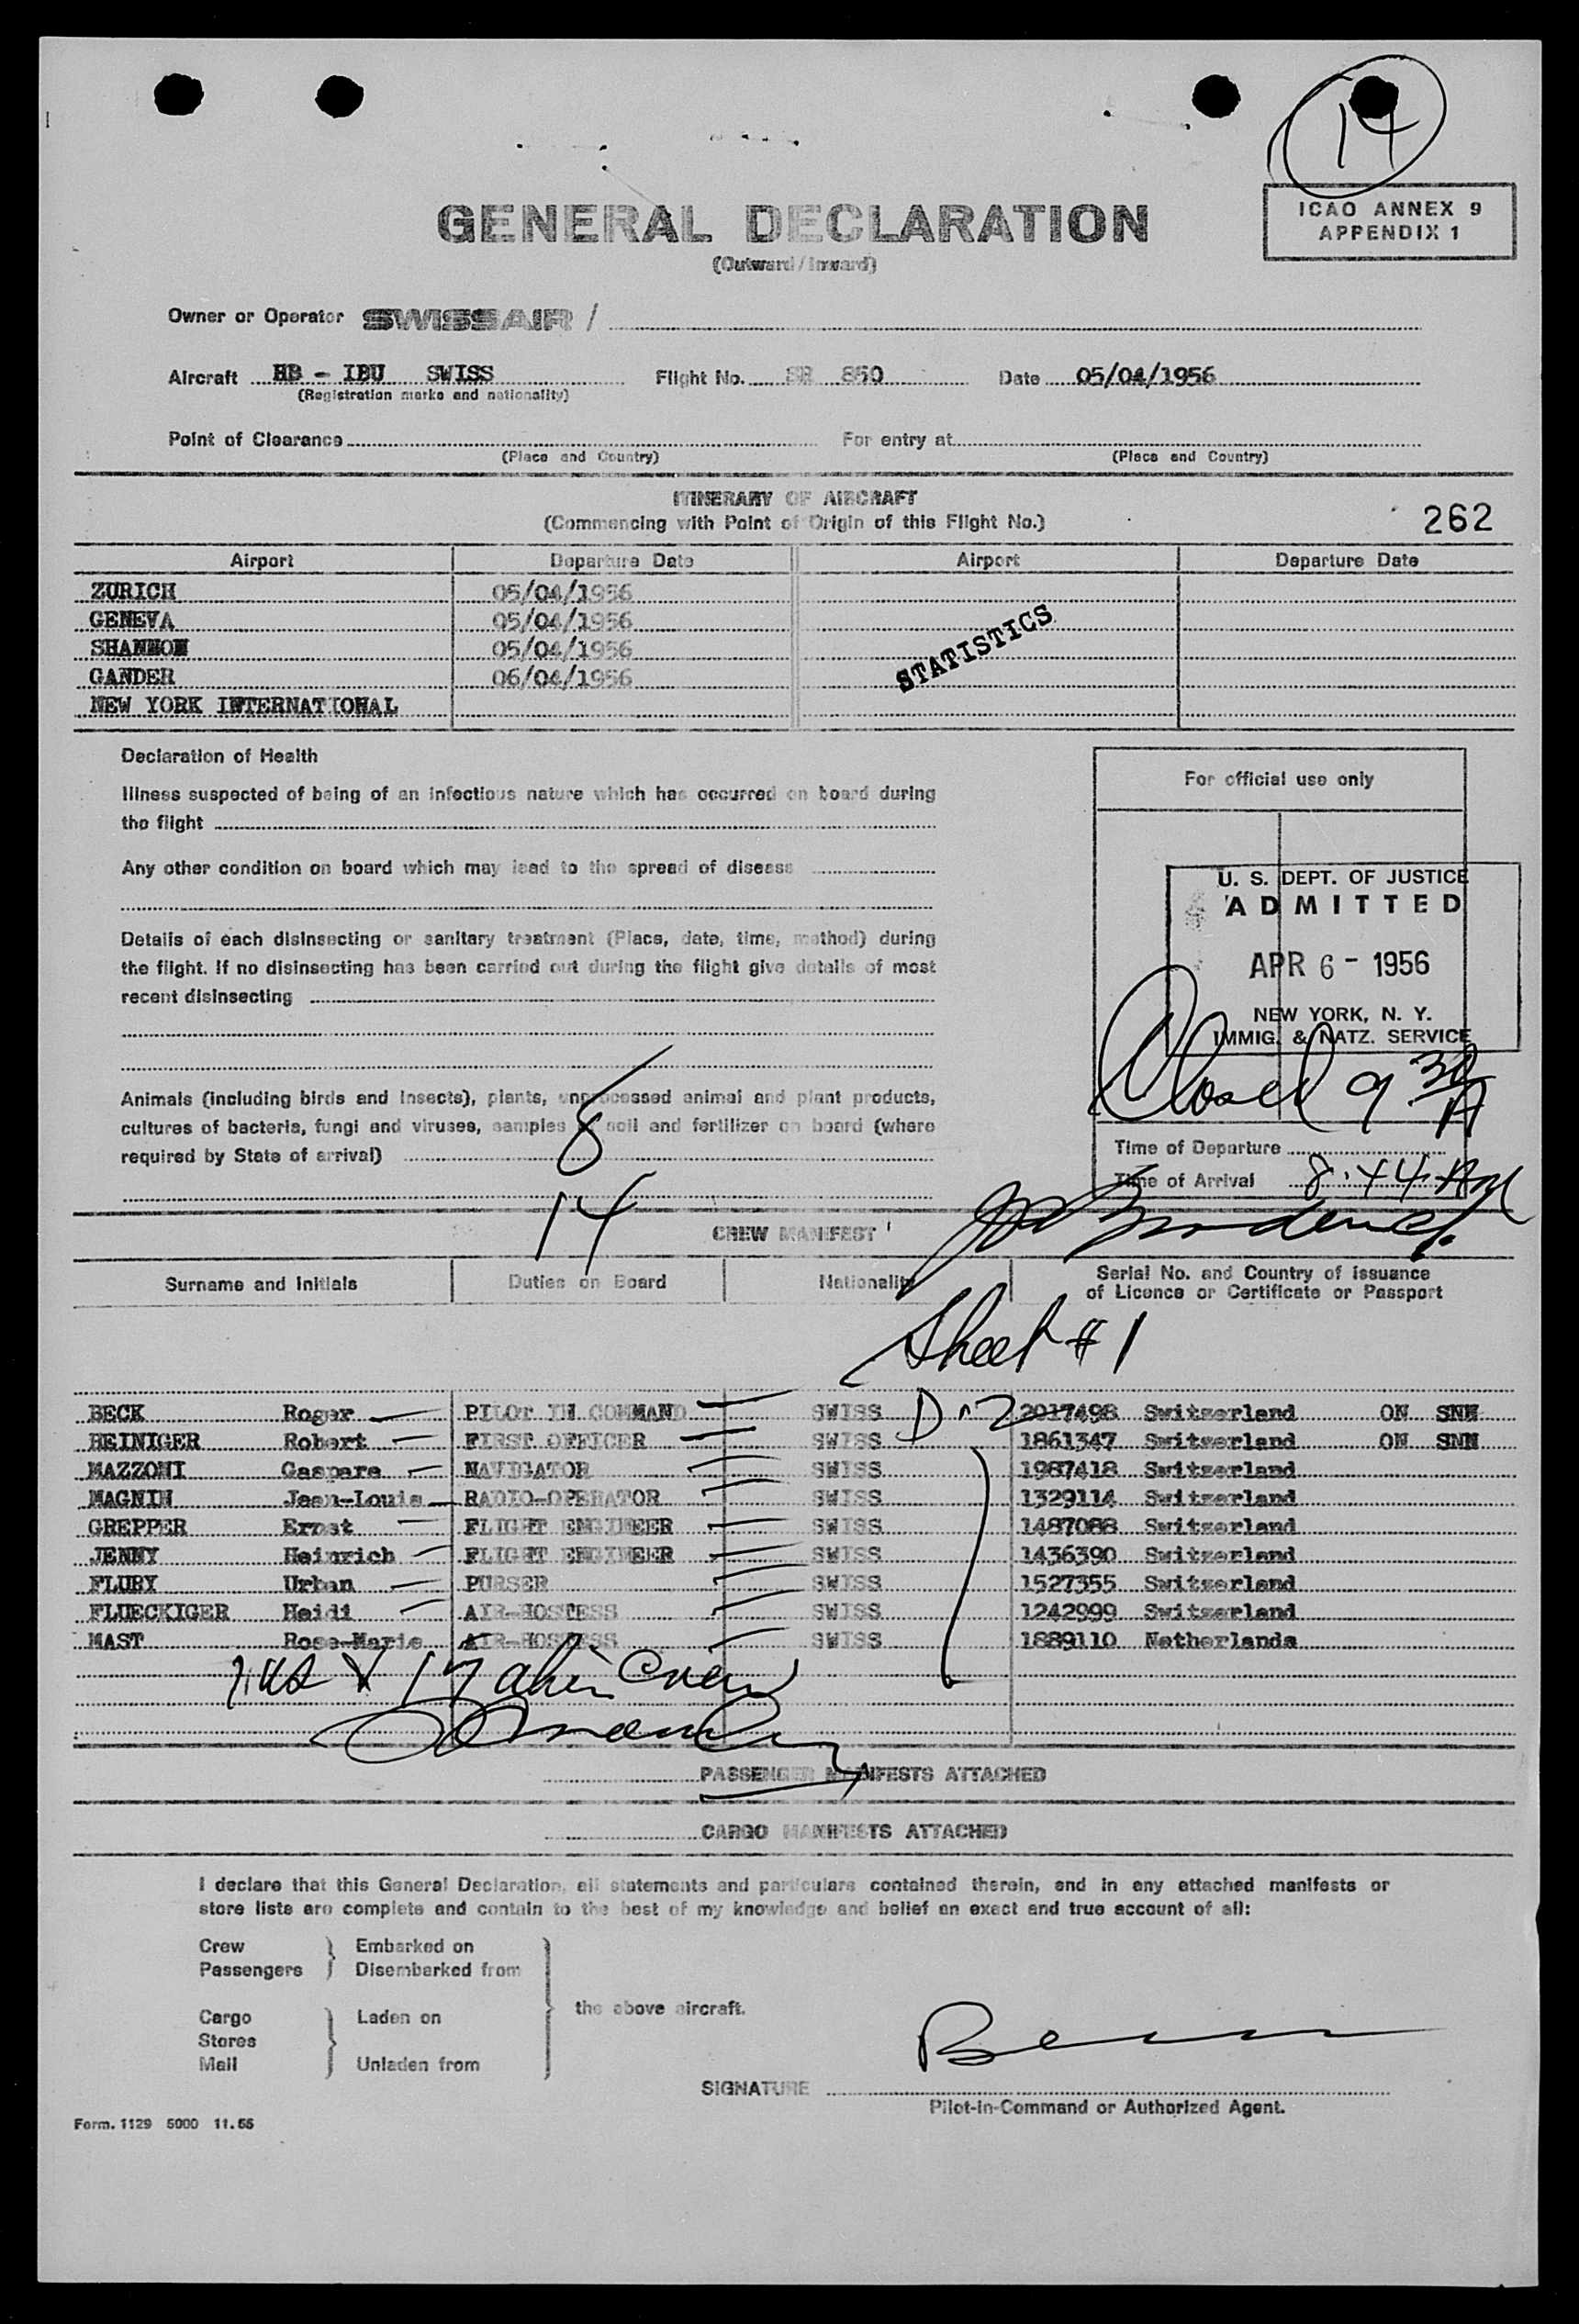 14
GENERAL DECLARATION
(Outward / Inward)
ICAO ANNEX 9
APPENDIX 1
Owner or Operator SWISSAIR /
Aircraft HB - IBU SWISS Flight No. SR 850 Date 05/04/1956
(Registration marks and nationality)
Point of Clearance For entry at
(Place and Country) (Place and Country)
ITINERARY OF AIRCRAFT
(Commencing with Point of Origin of this Flight No.)
262
Airport Departure Date Airport Departure Date
ZURICH 05/04/1956
GENEVA 05/04/1956
SHANNON 05/04/1956
GANDER 06/04/1956
NEW YORK INTERNATIONAL
STATISTICS
Declaration of Health
Illness suspected of being of an infectious nature which has occurred on board during
the flight
Any other condition on board which may lead to the spread of disease
Details of each disinsecting or sanitary treatment (Place, date, time, method) during
the flight. If no disinsecting has been carried out during the flight give details of most
recent disinsecting
Animals (including birds and insects), plants, unprocessed animal and plant products,
cultures of bacteria, fungi and viruses, samples of soil and fertilizer on board (where
required by State of arrival)
8
14
For official use only
U. S. DEPT. OF JUSTICE
ADMITTED
APR 6 - 1956
NEW YORK, N. Y.
IMMIG. & NATZ. SERVICE
Closed 9 30 A
Time of Departure
Time of Arrival 8:44 AM
CREW MANIFEST
Surname and Initials Duties on Board Nationality Serial No. and Country of Issuance
of Licence or Certificate or Passport
Sheet # 1
D-2
BECK Roger PILOT IN COMMAND SWISS 2017498 Switzerland ON SNN
HEINIGER Robert FIRST OFFICER SWISS 1861347 Switzerland ON SNN
MAZZONI Gaspare NAVIGATOR SWISS 1987418 Switzerland
MAGNIN Jean-Louis RADIO-OPERATOR SWISS 1329114 Switzerland
GREPPER Ernst FLIGHT ENGINEER SWISS 1487088 Switzerland
JENNY Heinrich FLIGHT ENGINEER SWISS 1436390 Switzerland
FLURY Urban PURSER SWISS 1527355 Switzerland
FLUECKIGER Heidi AIR-HOSTESS SWISS 1242999 Switzerland
MAST Rose-Marie AIR-HOSTESS SWISS 1889110 Netherlands
alien Crew
PASSENGER MANIFESTS ATTACHED
CARGO MANIFESTS ATTACHED
I declare that this General Declaration, all statements and particulars contained therein, and in any attached manifests or
store lists are complete and contain to the best of my knowledge and belief an exact and true account of all:
Crew Embarked on
Passengers Disembarked from
the above aircraft.
Cargo Laden on
Stores
Mail Unladen from
SIGNATURE
Pilot-in-Command or Authorized Agent.
Form. 1129 5000 11.55